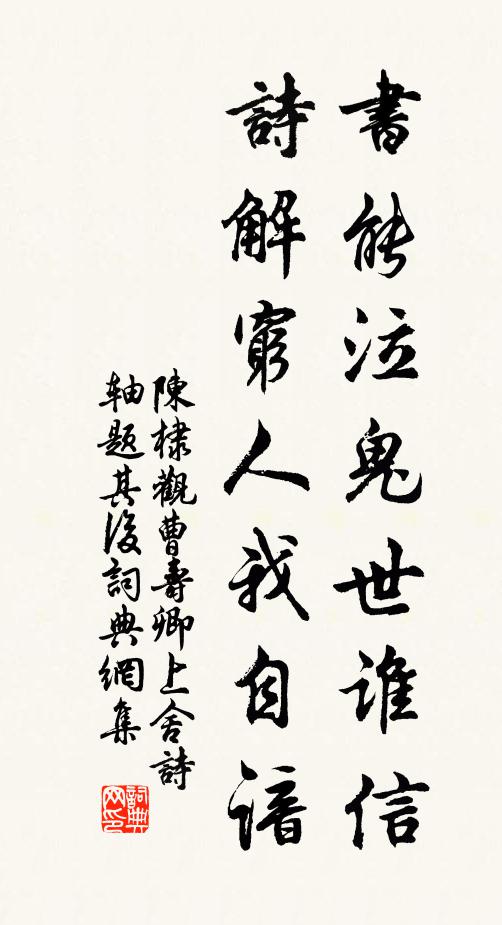 書能泣鬼世誰信
詩解窮人我自諳
陳棣觀曹壽卿上舍詩
軸題其後詞典網集
詞典网印